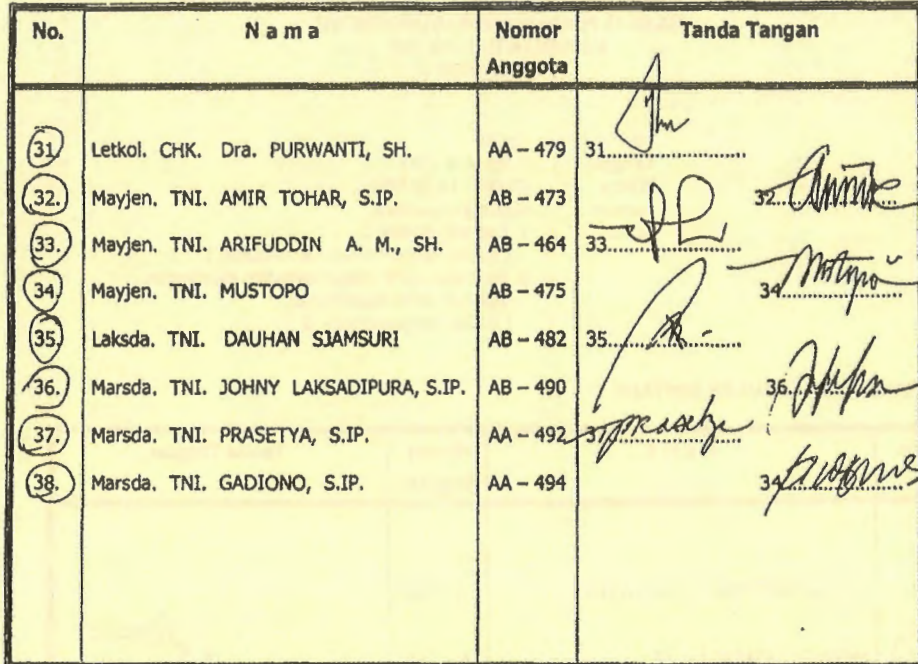 No. N a m a Nomor Anggota Tanda Tangan
31. Letkol. CHK. Dra. PURWANTI, SH. AA – 479 31..........................
32. Mayjen. TNI. AMIR TOHAR, S.IP. AB – 473 32..........................
33. Mayjen. TNI. ARIFUDDIN A. M., SH. AB – 464 33..........................
34. Mayjen. TNI. MUSTOPO AB – 475 34..........................
35. Laksda. TNI. DAUHAN SJAMSURI AB – 482 35..........................
36. Marsda. TNI. JOHNY LAKSADIPURA, S.IP. AB – 490 36..........................
37. Marsda. TNI. PRASETYA, S.IP. AA – 492 37 prasetya
38. Marsda. TNI. GADIONO, S.IP. AA – 494 34..........................